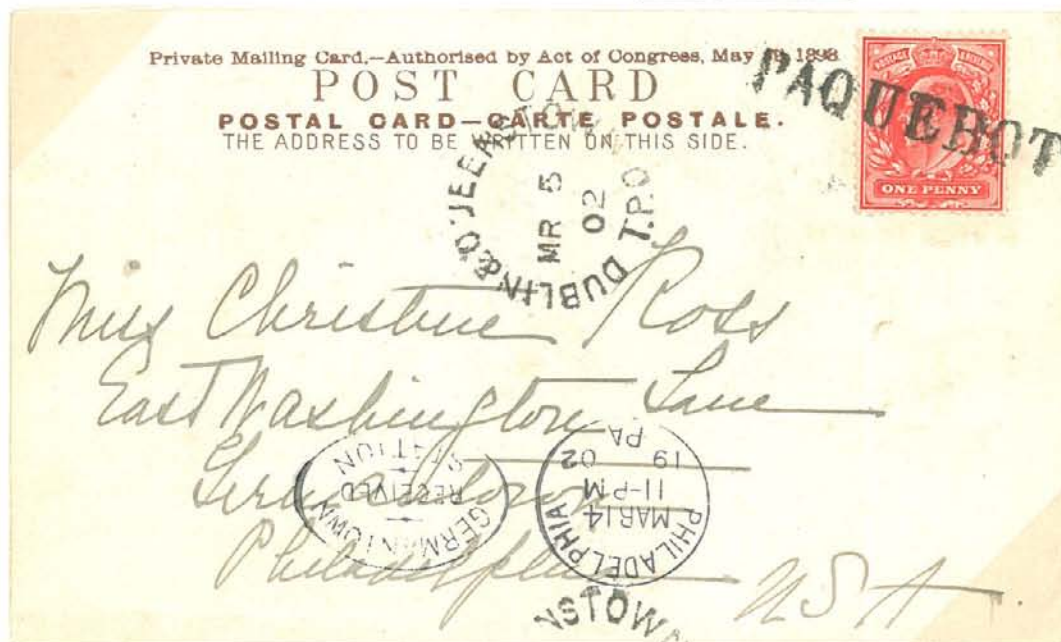 Private Mailing Card.—Authorised by Act of Congress, May 19, 1898.
POST CARD
POSTAL CARD—CARTE POSTALE.
THE ADDRESS TO BE WRITTEN ON THIS SIDE.
PAQUEBOT
ONE PENNY
DUBLIN & QUEENSTOWN
T.P.O
MR 5
02
Miss Christine Ross
East Washington Lane
Germantown
Philadelphia
USA
GERMANTOWN
RECEIVED
STATION
PHILADELPHIA
PA
MAR 14
11-PM
19 02
NSTOWN